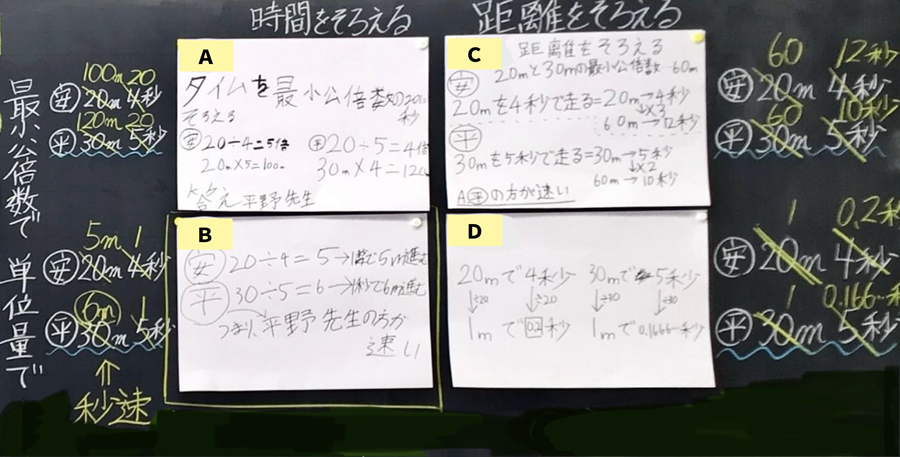 時間をそろえる
距離をそろえる
最小公倍数で
単位量で
100m 20
安 20m 4秒
120m 20
平 30m 5秒
5m 1
安 20m 4秒
6m 1
平 30m 5秒
⇑
秒速
A
タイムを最小公倍数の20秒
そろえる
安 20÷4=5倍
20m×5=100m
平 20÷5=4倍
30m×4=120m
答え 平野先生
B
安 20÷4=5→1秒で5m進む
平 30÷5=6→1秒で6m進む
つまり、平野先生の方が
速い
C
距離をそろえる
安 20mと30mの最小公倍数 60m
20mを4秒で走る=20m→4秒
↓×3
60m→12秒
平
30mを5秒で走る=30m→5秒
↓×2
60m→10秒
A 平の方が速い
D
20mで4秒 30mで5秒
↓÷20 ↓÷20 ↓÷30 ↓÷30
1mで0.2秒 1mで0.1666…秒
60 12秒
安 20m 4秒
60 10秒
平 30m 5秒
1 0.2秒
安 20m 4秒
1 0.166…秒
平 30m 5秒